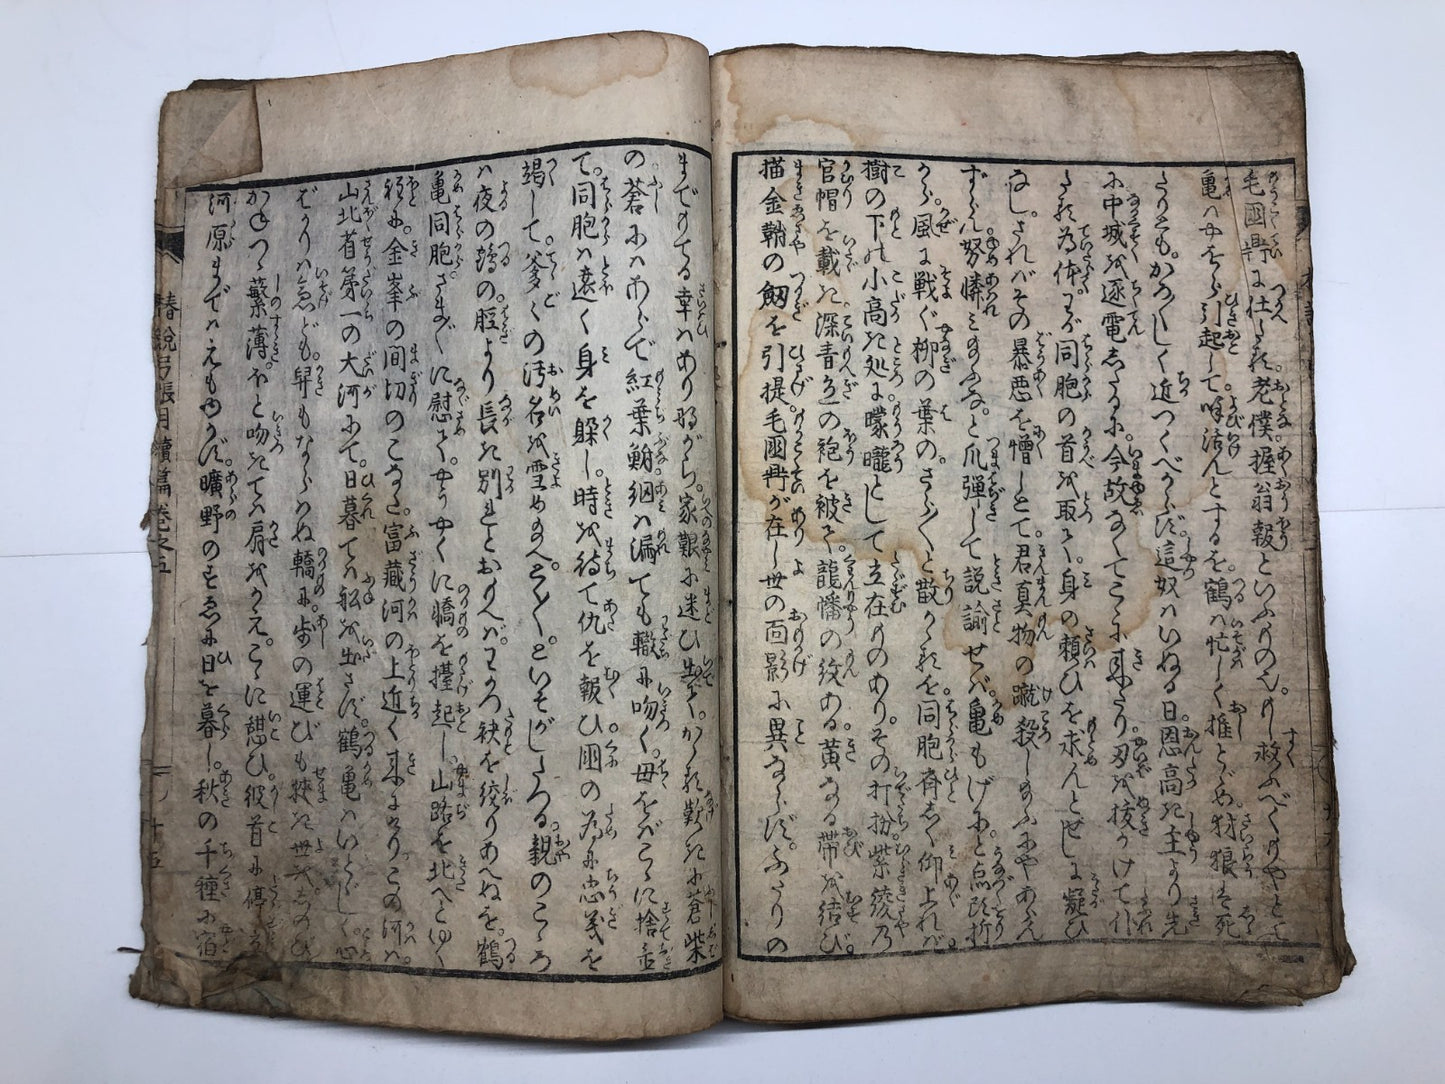 毛國鼎に仕へたる老僕握翁報といふものへ。もし救ふべくもやとて
亀は母をら引起して呼活んとするを。鶴は忙しく推とゞめ。豺狼は死
たりとも。かろ〴〵しく近つくべからず。這奴はいぬる日恩高き主より先
に中城を逐電したるに。今故なくてこゝに来たり刃を抜かけて仆
たる為体。すべて同胞の首を取て。身の頼ひを求んとせしに疑ひ
なし。されバその暴悪を憎しとて。君真物の蹴殺し給ふにやあらん
ずらん。努憐み給ふな。と爪弾して説諭せバ。亀もげにと点頭折
から風に戦ぐ柳の葉の。さら〳〵と散かゝるを同胞斉しく仰上れバ
樹の下の小高き処に朦朧として立在ものあり。その打扮紫綾乃
官帽を載き深青色の袍を被て。龍幡の紋ある黄なる帯を結び。
描金鞘の劔を引提毛國鼎が在し世の面影に異ならず。ふたりの
までもてる幸はあり那がら。家艱に迷ひ出て。かゝる歎きに蒼柴
の蒼にはあらで紅葉鮒網は漏ても轍に吻く。母をばこゝに捨
て。同胞は遠く身を躱し。時を待て仇を報ひ国の為に忠義を
竭して。爹々の汚名を雪め給へ。とく〳〵。といそがしたる。親のこゝろ
は夜の鶴の脛より長き別れとおもへば。わかつ袂を絞りあへぬを。鶴
亀同胞さま〴〵に慰て。やうやくに轎を擡起し。山路を北へとゆく
程に。金峯の間切のこなた。富蔵河の上近く来にけり。この河は。
山北省第一の大河にて。日暮ては船を出さず。鶴亀はいとゞしく。心
ばかりは急ども昇もならはぬ轎に。歩の運びも狭き世をしのび
かねつゝ蘩薄。ほと吻きては肩をかえ。こゝに憩ひ彼首に停
河原までは。えもゆかず。曠野のすゑに日を暮し。秋の千種に宿
椿説弓張月續篇巻之五
十五